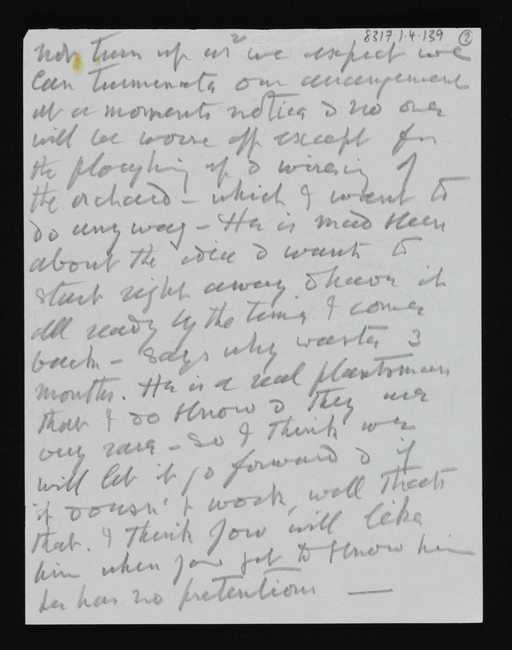 8317.1.4.139 2
not turn up as we expect we
can terminate our arrangement
at a moments notice & no one
will be worse off except for
the ploughing up & wiring of
the orchard – which I want to
do any way – He is mad keen
about the idea & wants to
start right away & have it
all ready by the time I come
back – Says why waste 3
months. He is a real plantsman
that I do know & they are
very rare – So I think we
will let it go forward & if
it doesn't work, well thats
that. I think you will like
him when you get to know him
he has no pretentions —